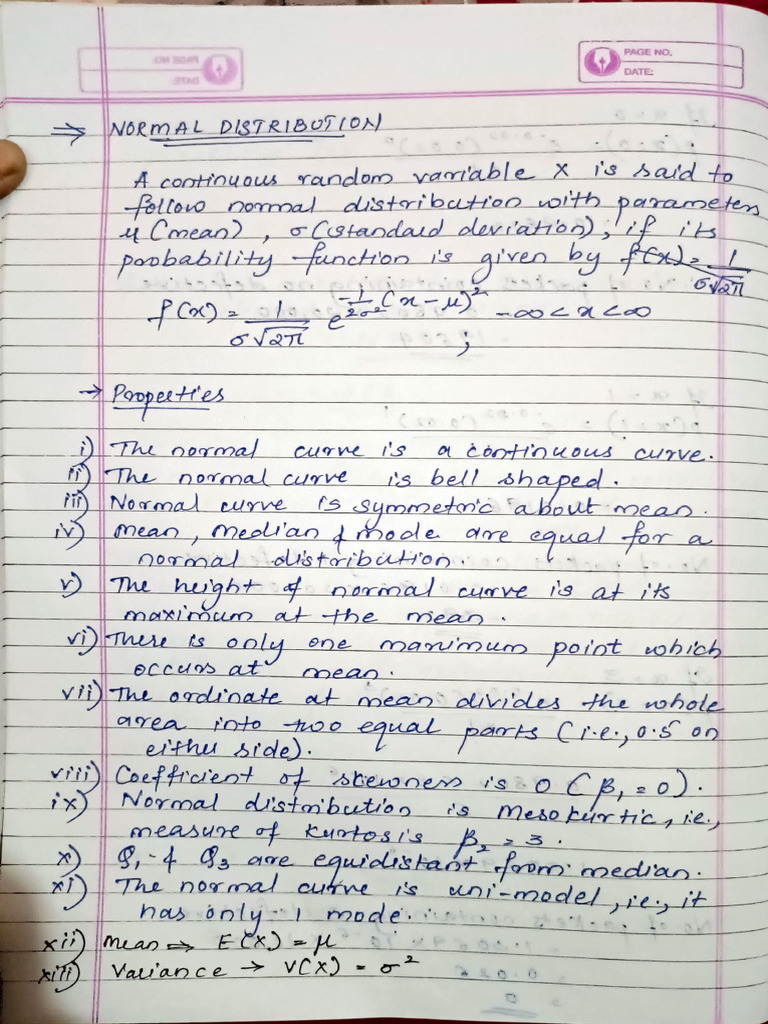 PAGE NO.
DATE:
⇒ NORMAL DISTRIBUTION
A continuous random variable X is said to
follow normal distribution with parameters
μ (mean), σ (standard deviation); if its
probability function is given by f(x) = 1/σ√2π
f(x) = 1/σ√2π e^(-1/2σ² (x-μ)²) ; -∞ < x < ∞
→ Properties
i) The normal curve is a continuous curve.
ii) The normal curve is bell shaped.
iii) Normal curve is symmetric about mean.
iv) Mean, median & mode are equal for a
normal distribution.
v) The height of normal curve is at its
maximum at the mean.
vi) There is only one maximum point which
occurs at mean.
vii) The ordinate at mean divides the whole
area into two equal parts (i.e., 0.5 on
either side).
viii) Coefficient of skewness is 0 (β₁ = 0).
ix) Normal distribution is Mesokurtic, i.e.,
measure of kurtosis β₂ = 3.
x) Q₁ & Q₃ are equidistant from median.
xi) The normal curve is uni-model, i.e., it
has only 1 mode.
xii) Mean ⇒ E(X) = μ
xiii) Variance → V(X) = σ²